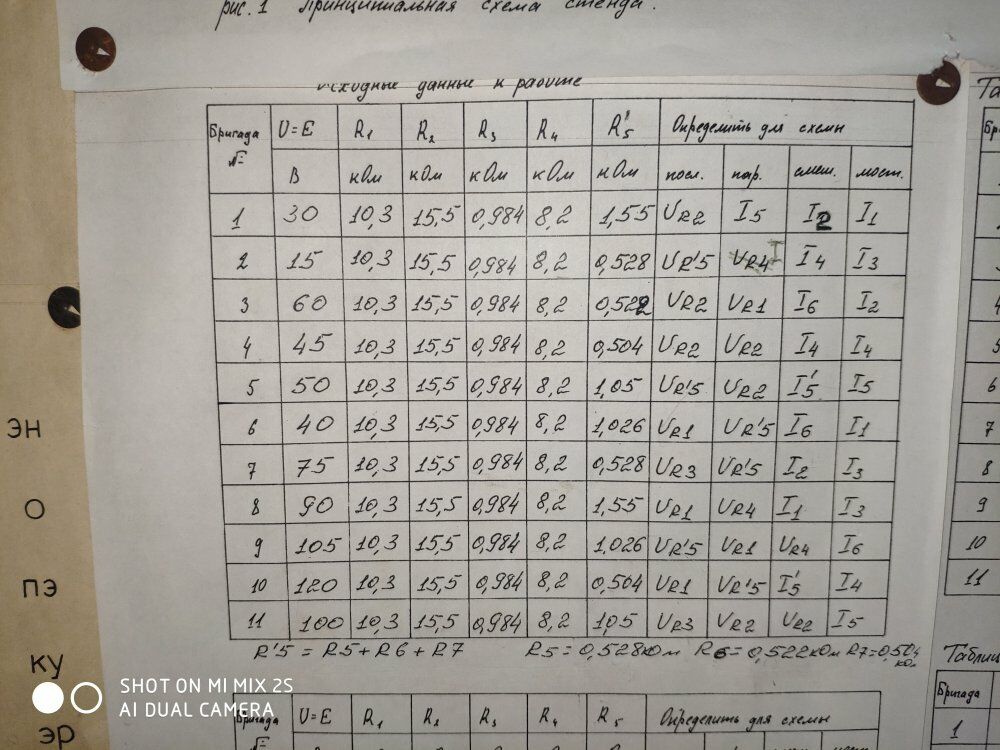 рис. 1 Принципиальная схема стенда.
Исходные данные к работе
Бригада № U=E R1 R2 R3 R4 R'5 Определить для схемы
В кОм кОм кОм кОм кОм посл. пар. смеш. мост.
1 30 10,3 15,5 0,984 8,2 1,55 UR2 I5 I2 I1
2 15 10,3 15,5 0,984 8,2 0,528 UR'5 UR4 I4 I3
3 60 10,3 15,5 0,984 8,2 0,522 UR2 UR1 I6 I2
4 45 10,3 15,5 0,984 8,2 0,504 UR2 UR2 I4 I4
5 50 10,3 15,5 0,984 8,2 1,05 UR'5 UR2 I'5 I5
6 40 10,3 15,5 0,984 8,2 1,026 UR1 UR'5 I6 I1
7 75 10,3 15,5 0,984 8,2 0,528 UR3 UR'5 I2 I3
8 90 10,3 15,5 0,984 8,2 1,55 UR1 UR4 I1 I3
9 105 10,3 15,5 0,984 8,2 1,026 UR'5 UR1 UR4 I6
10 120 10,3 15,5 0,984 8,2 0,504 UR1 UR'5 I'5 I4
11 100 10,3 15,5 0,984 8,2 1,05 UR3 UR2 UR2 I5
R'5 = R5+R6+R7 R5=0,528кОм R6=0,522кОм R7=0,504 кОм
Бригада № U=E R1 R2 R3 R4 R5 Определить для схемы
Та
Бригада
6
7
8
9
10
11
Таблиц
Бригада
1
ЭН
О
ПЭ
КУ
ЭР
SHOT ON MI MIX 2S
AI DUAL CAMERA